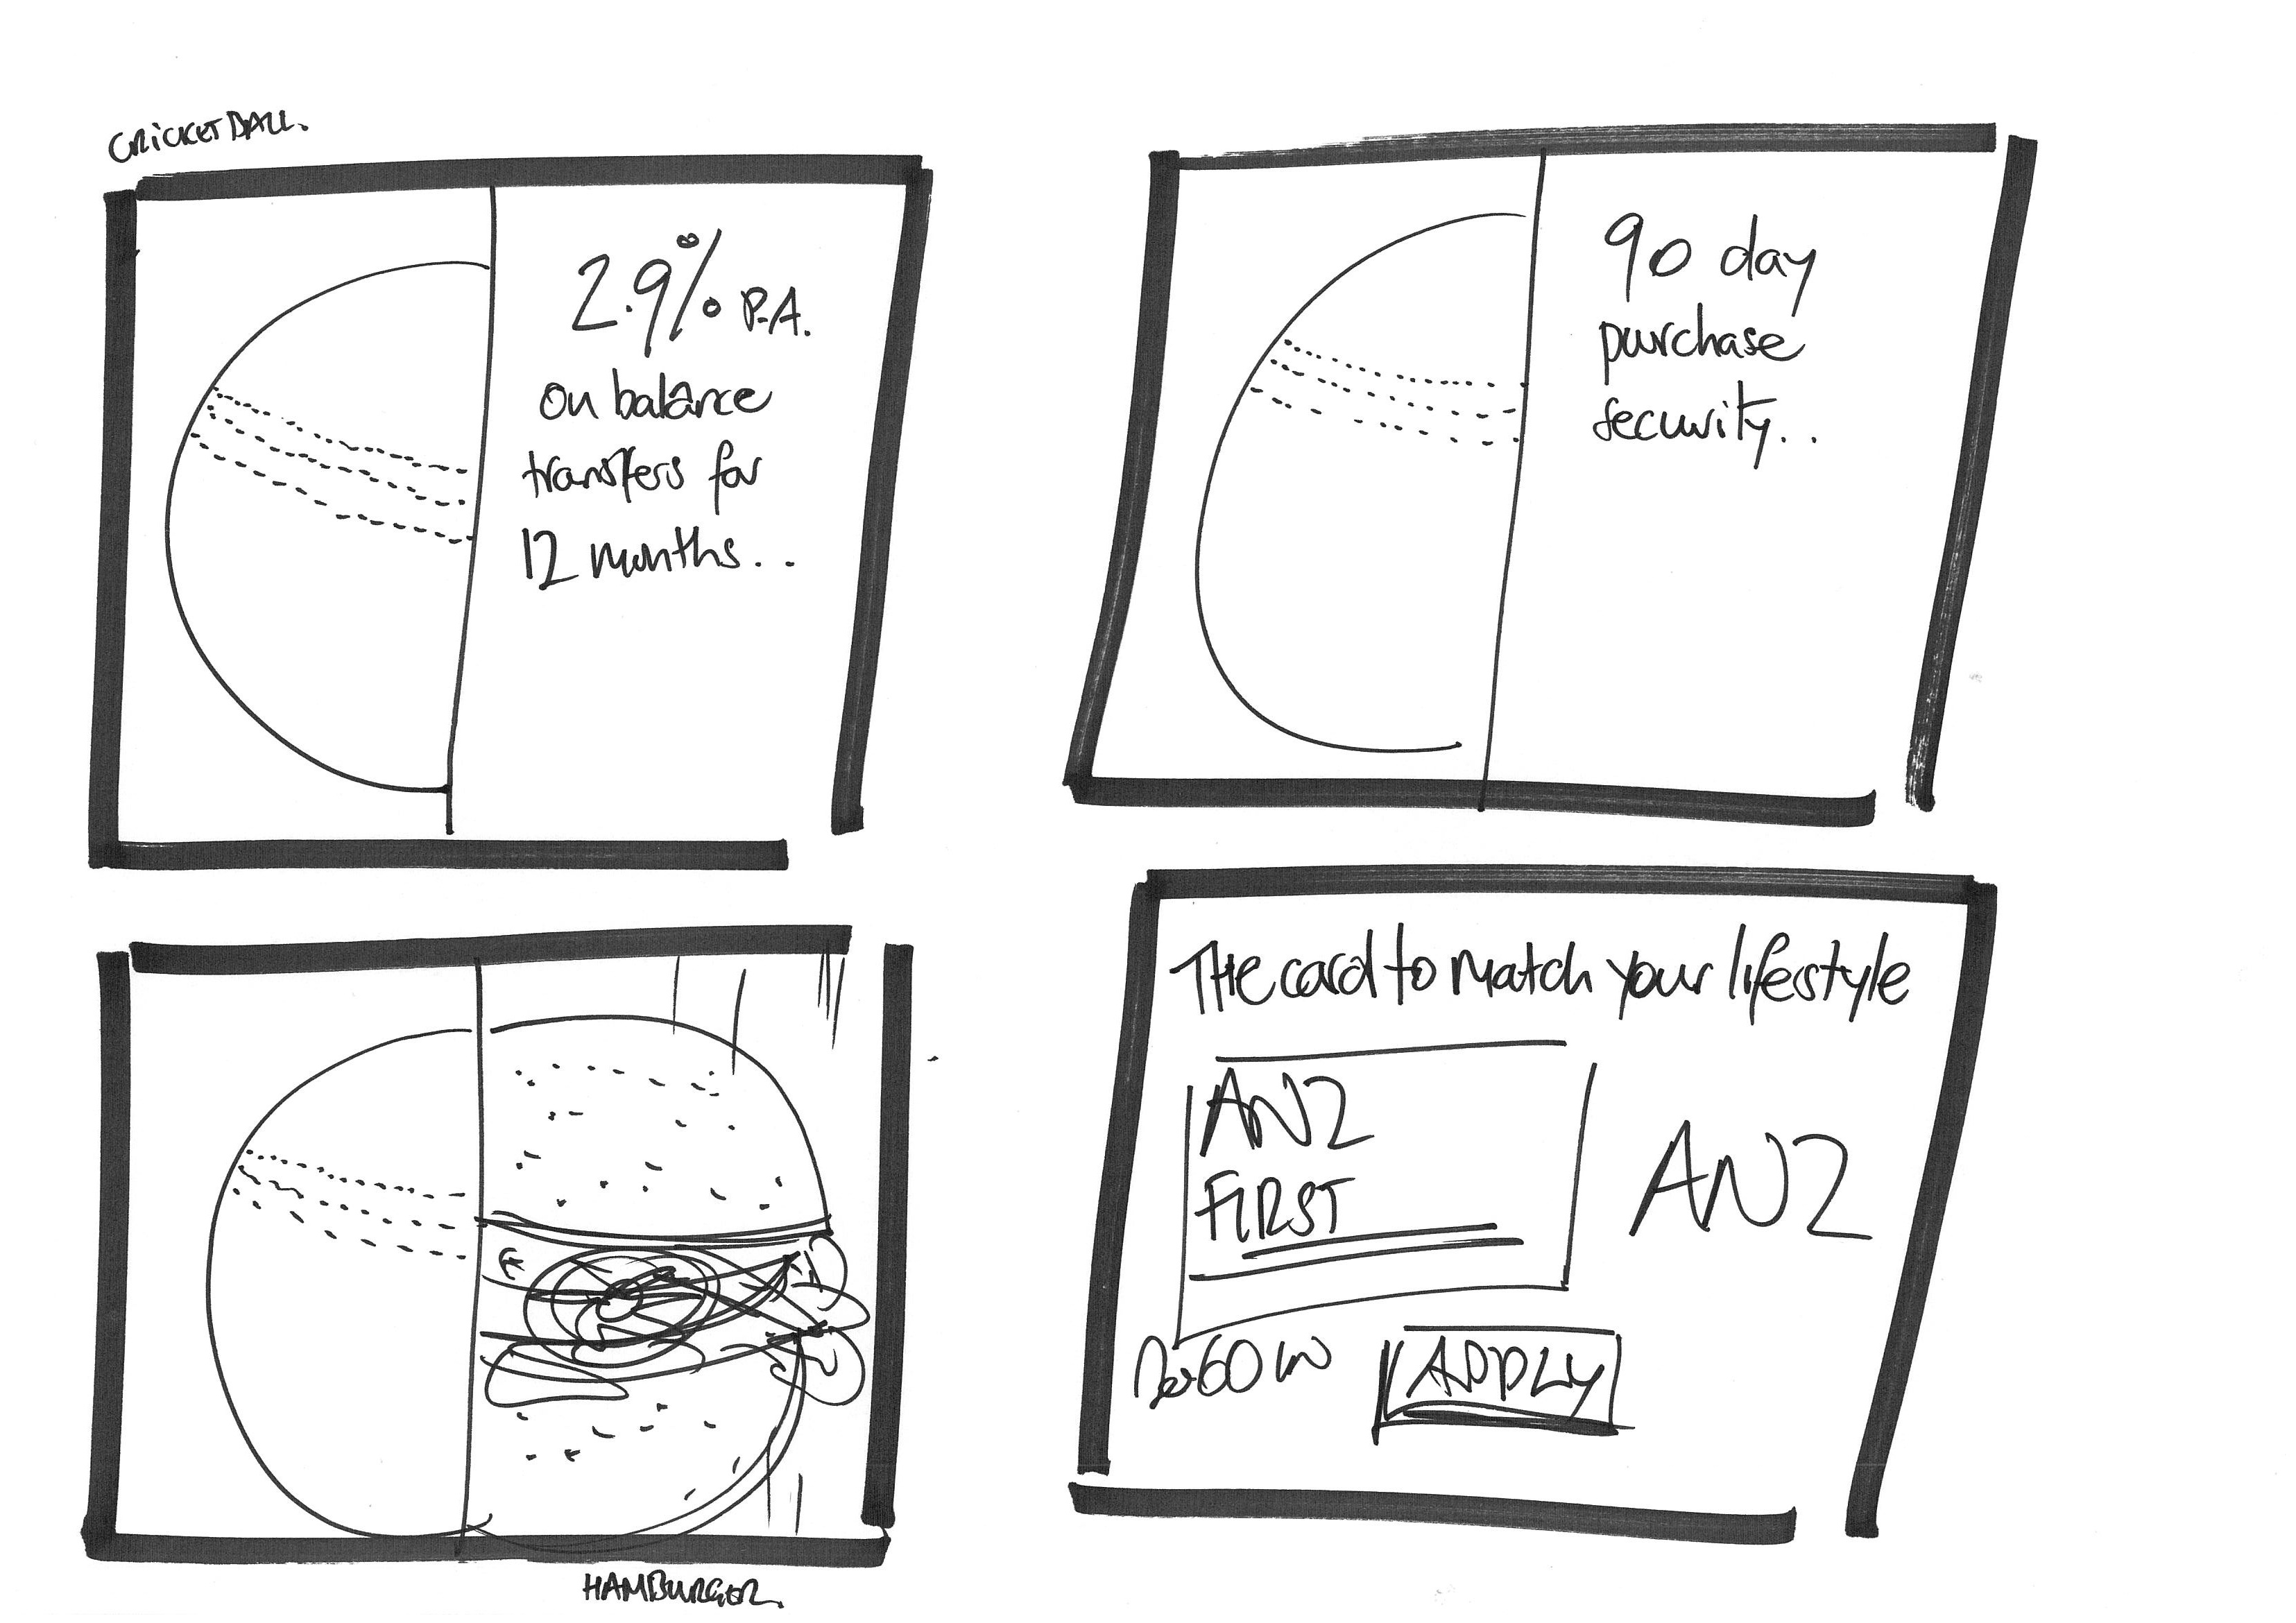 CRICKET BALL.
2.9% P.A.
on balance
transfers for
12 months..
90 day
purchase
security..
HAMBURGER
The card to match your lifestyle
ANZ
FIRST
ANZ
APPLY